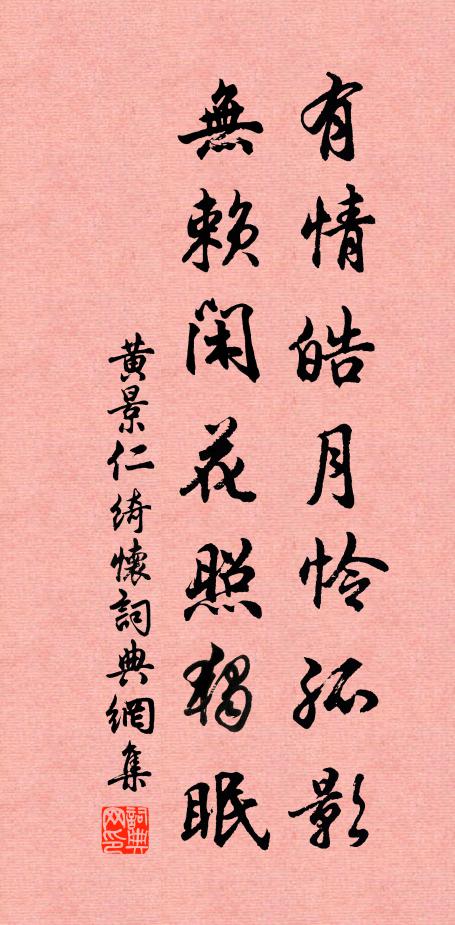 有情皓月怜孤影
無赖闲花照獨眠
黄景仁绮懷詞典網集
詞典网印